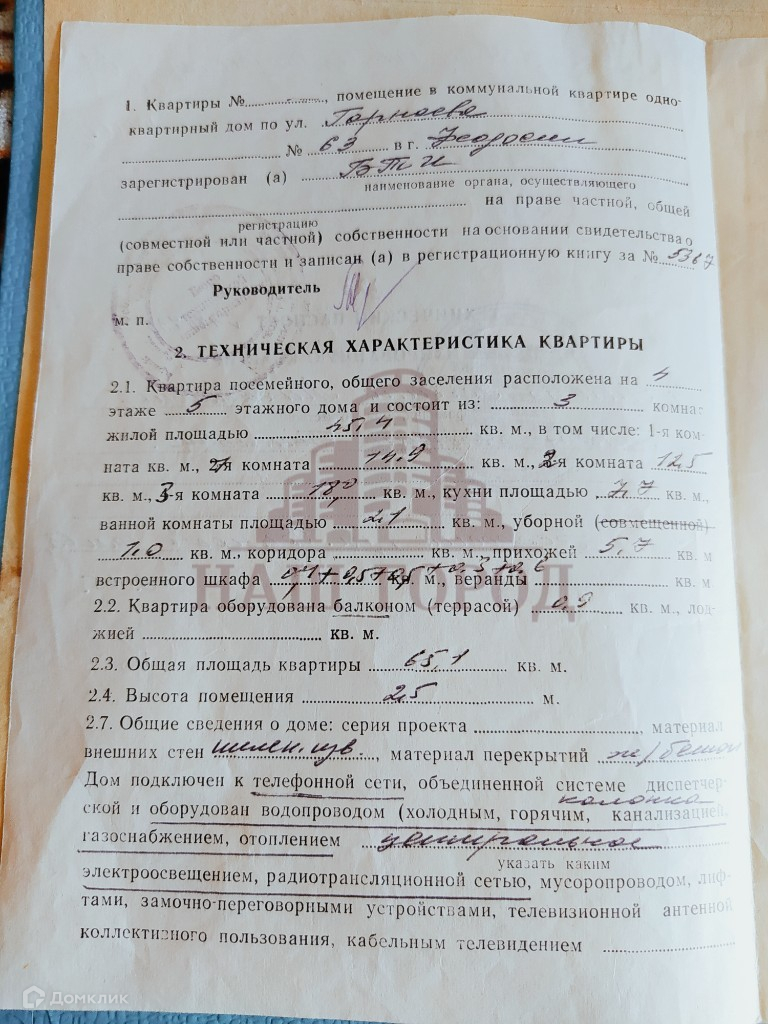 1. Квартиры №............, помещение в коммунальной квартире одно-
квартирный дом по ул. Гарнаева
№ 63 в г. Феодосии
зарегистрирован (а) БТИ
наименование органа, осуществляющего
на праве частной, общей
регистрацию
(совместной или частной) собственности на основании свидетельства о
праве собственности и записан (а) в регистрационную книгу за № 5367
Руководитель
м. п.
2. ТЕХНИЧЕСКАЯ ХАРАКТЕРИСТИКА КВАРТИРЫ
2.1. Квартира посемейного, общего заселения расположена на 4
этаже 5 этажного дома и состоит из: 3 комнат
жилой площадью 45,4 кв. м., в том числе: 1-я ком-
ната кв. м., 1-я комната 14.9 кв. м., 2-я комната 12.5
кв. м., 3-я комната 18,0 кв. м., кухни площадью 7,7 кв. м.,
ванной комнаты площадью 2,1 кв. м., уборной (совмещенной)
1,0 кв. м., коридора кв. м., прихожей 5,7 кв. м
встроенного шкафа 0,4+0,5+0,5+0,3+0,6 кв. м., веранды кв. м
НАШ ГОРОД
2.2. Квартира оборудована балконом (террасой) 0,9 кв. м., лод-
жией кв. м.
2.3. Общая площадь квартиры 65,1 кв. м.
2.4. Высота помещения 2,5 м.
2.7. Общие сведения о доме: серия проекта , материал
внешних стен , материал перекрытий ж/бетон
Дом подключен к телефонной сети, объединенной системе диспетчер-
колонка
ской и оборудован водопроводом (холодным, горячим, канализацией,
газоснабжением, отоплением центральное
указать каким
электроосвещением, радиотрансляционной сетью, мусоропроводом, лиф-
тами, замочно-переговорными устройствами, телевизионной антенной
коллективного пользования, кабельным телевидением
Домклик